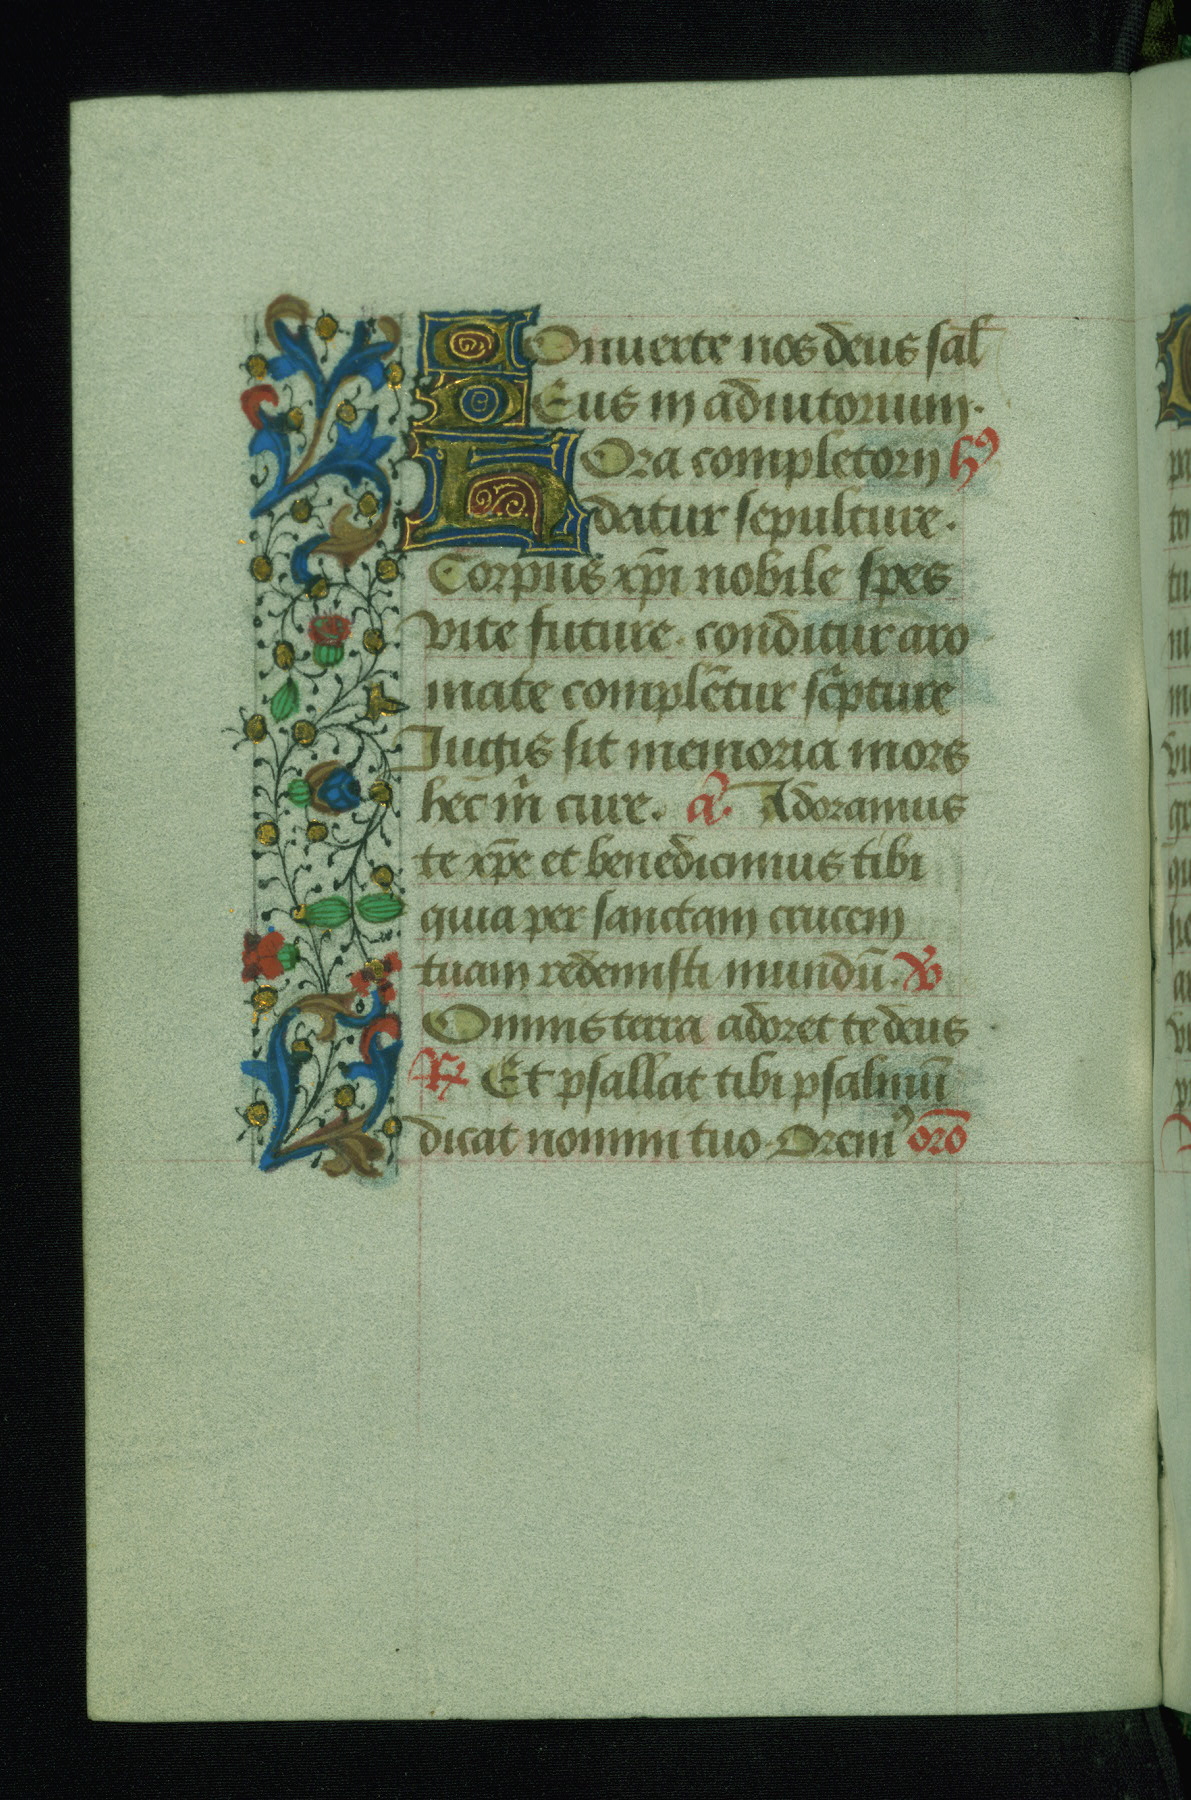 Conuerte nos deus sal̅
Deus in adiutorium.
Hora completorij hꝰ
datur sepulture.
Corpus xp̅i nobile spes
vite future. conditur aro
mate comple̅tur sc̉pture
Jugis sit memoria mors
hec m̉ cure. a̅. Adoramus
te xp̅e et benedicimus tibi
quia per sanctam crucem
tuam redemisti mundu̅. ℣
Omnis terra adoret te deus
℟ Et psallat tibi psalmu̅
dicat nomini tuo. Oremꝰ oro̅